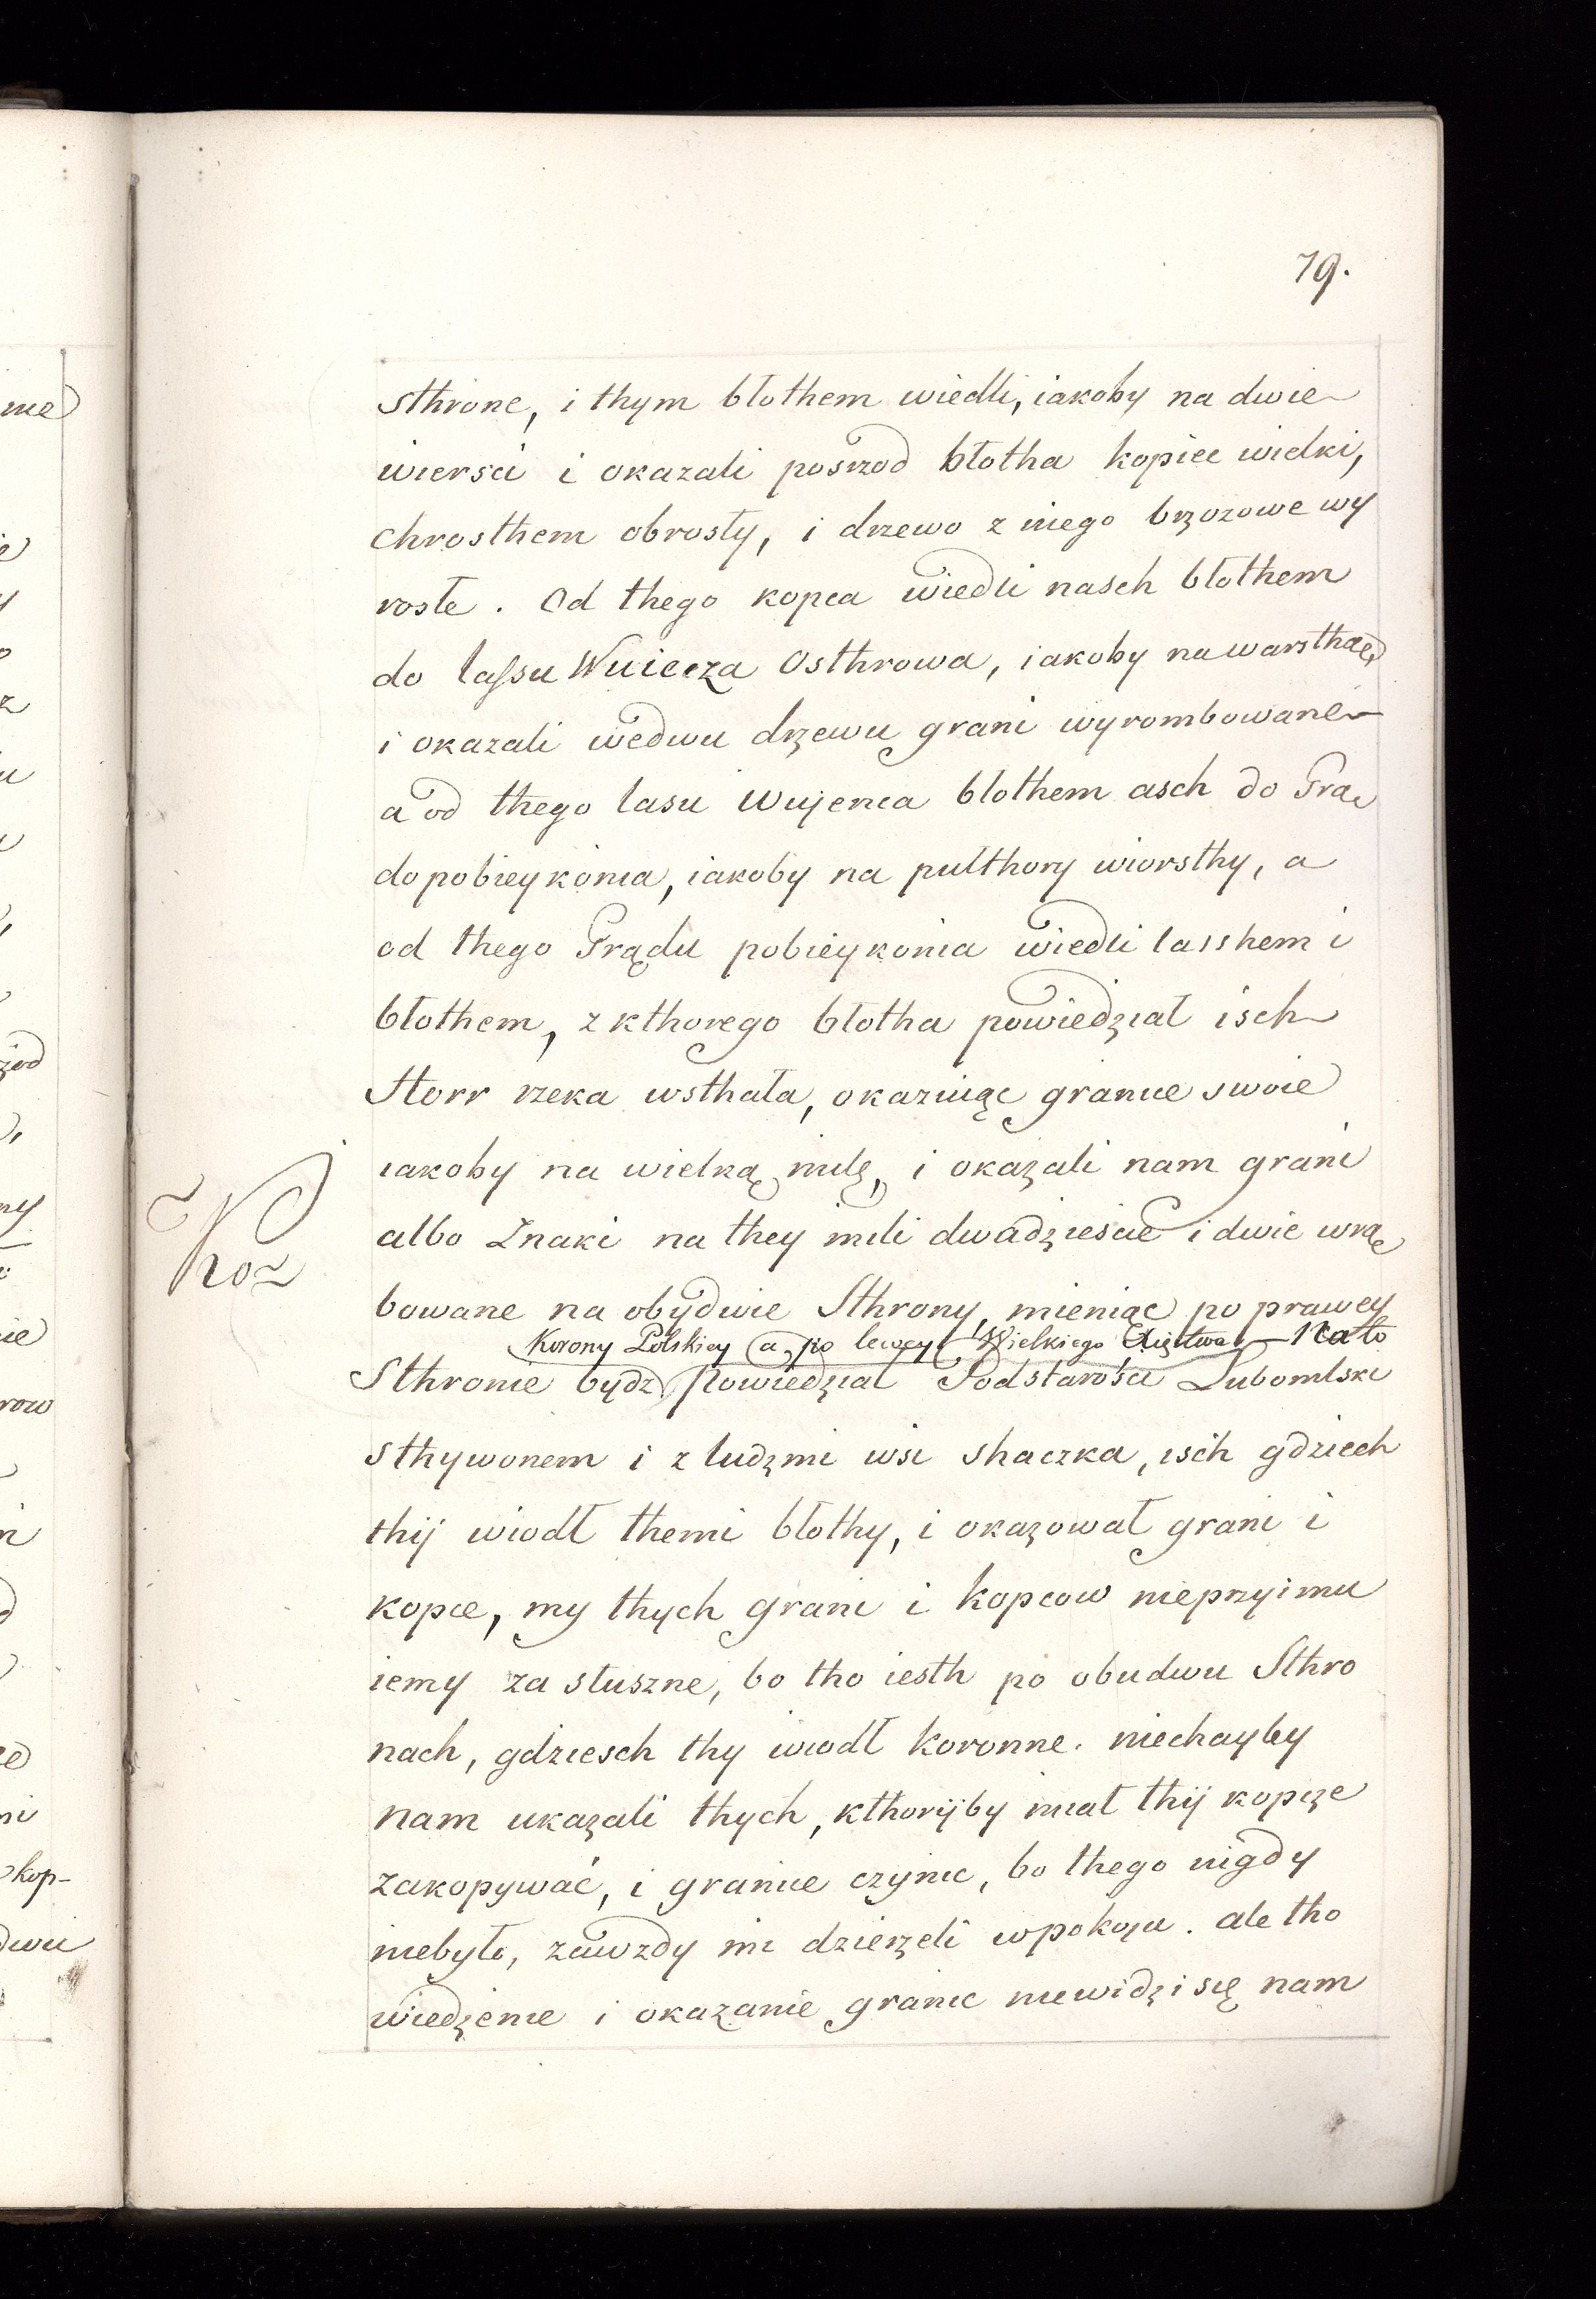 79.
sthrone, i thym błothem wiedli, iakoby na dwie
wiersci i okazali poszrod błotha kopiec wielki,
chrosthem obrosły, i drzewo z niego brzozowe wy
rosłe. Od thego kopca wiedli nasch błothem
do lassu Wuiecza Osthrowa, iakoby na warsthaę
i okazali wedwu drzewu grani wyrombowane
a od thego lasu Wujenca błothem asch do Gra
do pobieykonia, iakoby na pulthory wiorsthy, a
od thego Grądu pobieykonia wiedli lasskem i
błothem, z kthorego błotha powiedział isch
Sterr rzeka wsthała, okazuiąc granice swoie
iakoby na wielką milę, i okazali nam grani
albo Znaki na they mili dwadziescie i dwie wrą
bowane na obydwie Sthrony, mieniąc po prawey
Korony Polskiey a po lewey Wielkiego Xięstwa Na to
Sthronie bydz powiedział Podstarości Lubomlski
sthywonem i z ludzmi wsi shaczka, isch gdziech
thij wiodł themi błothy, i okazował grani i
kopce, my thych grani i kopcow nieprzyimu
iemy za słuszne, bo tho iesth po obudwu Sthro
nach, gdziesch thy wiodł koronne. niechayby
nam ukazali thych, kthorijby miał thij kopcze
zakopywać, i granice czynic, bo thego nigdy
niebyło, zawzdy mi dzierzeli w pokoju. ale tho
wiedzenie i okazanie granic niewidzi się nam